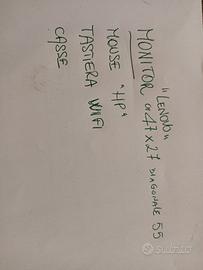 "LENOVO"
MONITOR CM 47 x 27 DIAGONALE 55
MOUSE "HP"
TASTIERA WIFI
CASSE
subito